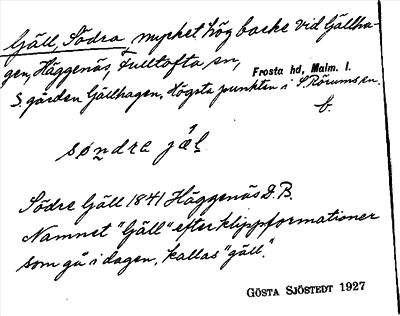 Gäll, Södra, mycket hög backe vid Gällha-
gen, Häggenäs, Fulltofta sn,
Frosta hd, Malm. l.
S. gården Gällhagen. Högsta punkten i S. Rörums sn.
søndra jæl
Södre Gäll 1841 Häggenäs D.B.
Namnet "Gäll" efter klippformationer
som gå i dagen, kallas "gäll".
GÖSTA SJÖSTEDT 1927